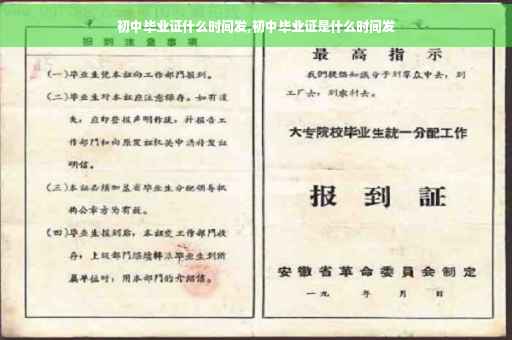 初中毕业证什么时间发,初中毕业证是什么时间发
报到注意事项
(一)毕业生凭本证向工作部门报到。
(二)毕业生对本证应注意保存。如有遗
失,应即登报声明作废,并报告工
作部门和向原发证机关申请补发证
明信。
(三)本证必须加盖省毕业生分配领导机
构公章方为有效。
(四)毕业生报到后,本证交工作部门收
存;上级部门
毕业生到所
属单位时,用本部门的介绍信。
最高指示
我们提倡知识分子到群众中去,到
工厂去,到农村去。
大专院校毕业生统一分配工作
报到証
安徽省革命委員会制定
一九 年 月 日